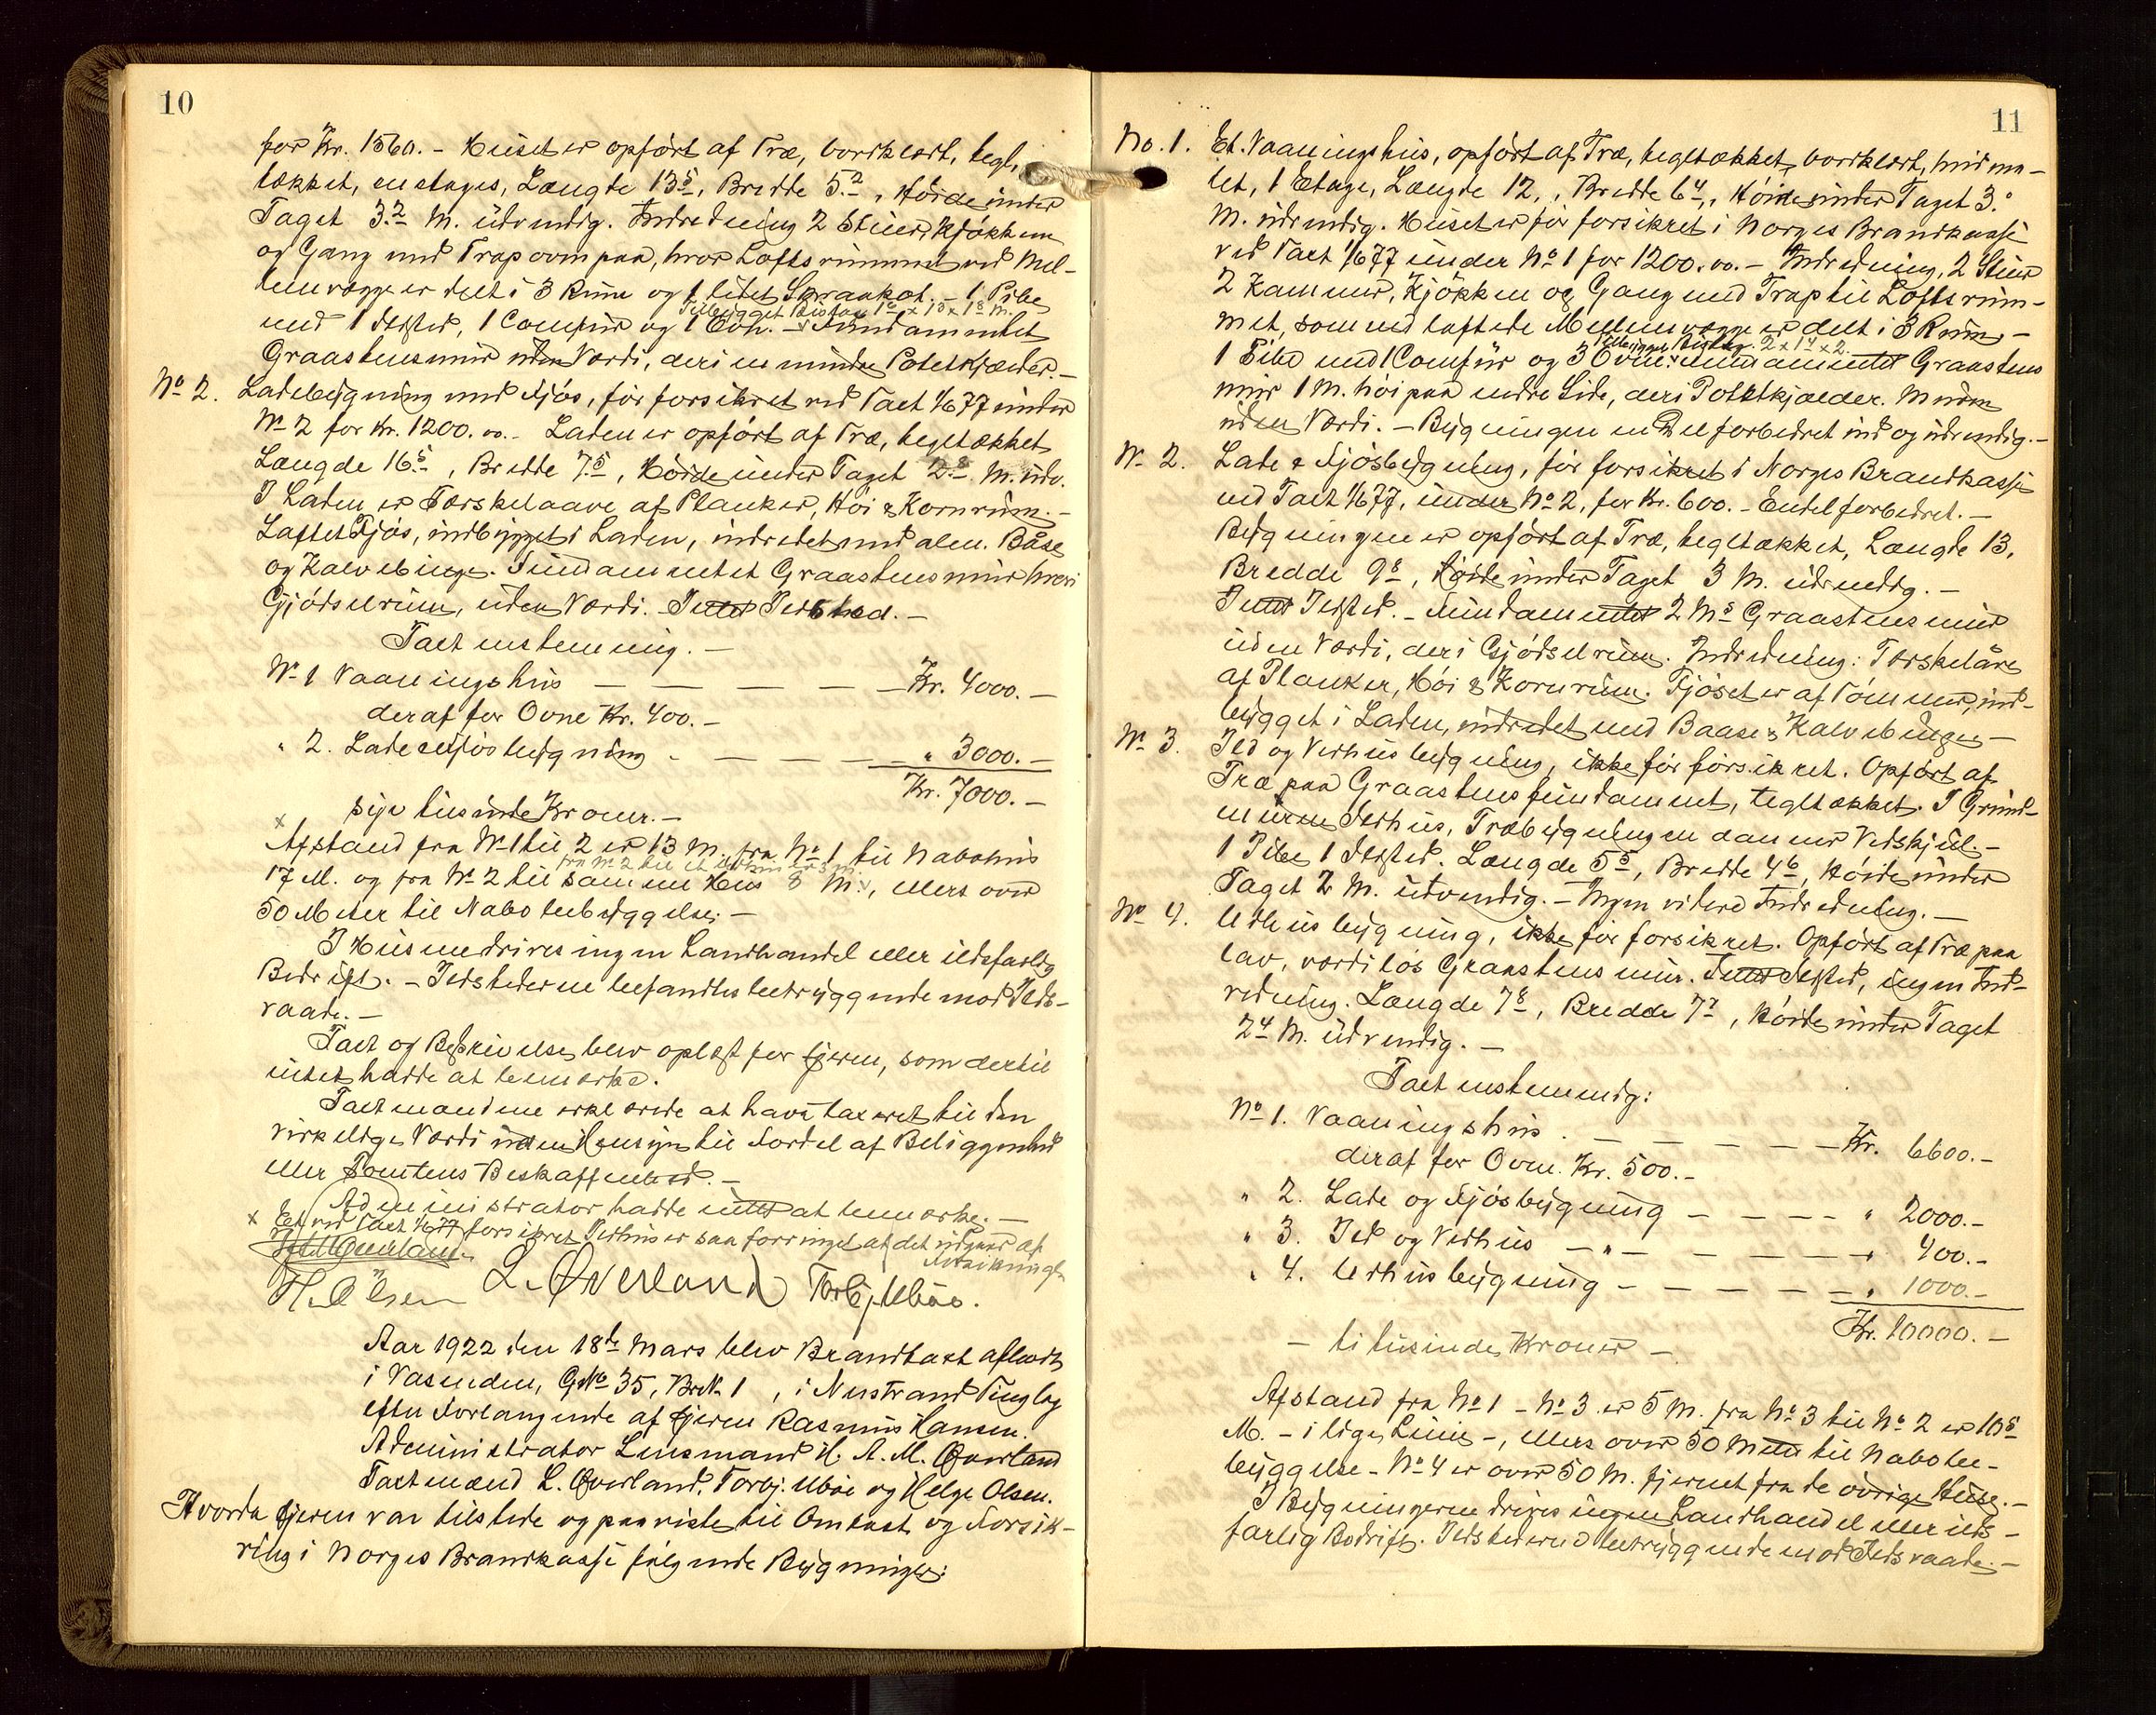 10
for Kr. 1560.- Huset er opført af Træ, bordklædt, tegl-
tækket, en etages, Længde 13.5, Bredde 5.2, Høide under
Taget 3.2 M. udvendig. Indredning 2 Stuer, Kjøkken
og Gang med Trap ovenpaa, hvor Loftsrummet ved Mel-
lemvægge er delt i 3 Rum og 1 lidet Skraakot. - 1 Pibe
Tilbygget Bislag
med 1 Ildsted, 1 Comfur og 1 Ovn. - Fundamentet
Graastensmur uden Værdi, deri en mindre Potetkjælder.-
No 2. Ladebygning med Fjøs, før forsikret ved Taxt 1/6 77 under
No 2 for Kr. 1200.00.- Laden er opført af Træ, tegltækket
Længde 16.5, Bredde 7.5, Høide under Taget 2.8 M. udv.
I Laden er Tærskelaave af Planker, Høi & Kornrum.-
Loftet Fjøs, indbygget i Laden, indredet med alm. Båse
og Kalvebinge. Fundamentet Graastensmur hvori
Gjødselrum, uden Værdi. Intet Ildsted.-
Taxt enstemmig.-
No 1 Vaaningshus - - - - - Kr. 4000.-
deraf for Ovne Kr. 400.-
" 2. Lade & Fjøsbygning - - - - " 3000.-
Kr. 7000.-
syv tusinde Kroner.-
x Afstand fra No 1 til 2 er 13 M. fra No 1 til Nabohus
fra No 2 til et
17 M. og fra No 2 til samme Hus 8 M., ellers over
50 Meter til Nabobebyggelse.-
I Husene drives ingen Landhandel eller ildsfarlig
Bedrift. - Ildstederne befandtes betryggende mod Ilds-
vaade.-
Taxt og Beskrivelse blev oplæst for Ejeren, som dertil
intet hadde at bemærke.
Taxtmændene erklærede at have taxeret til den
virkelige Værdi uden Hensyn til Fordel af Beliggenhed
eller Tomtens Beskaffenhed.-
Administrator hadde intet at bemærke.-
x Et ved Taxt 1/6 77 forsikret Ildhus er saa forringet at det udgaar af
Forsikringen
H. Olsen L. Øverland Torbj. Ubøe.
Aar 1922 den 18de Mars blev Brandtaxt afholdt
i Vasenden, GNo 35, BrN. 1, i Nerstrand Tinglag
efter Forlangende af Ejeren Rasmus Hansen.
Administrator Lensmand H. A. M. Øverland
Taxtmænd L. Øverland, Torbj. Ubøe og Helge Olsen.
Hvorda Ejeren var tilstede og paaviste til Omtaxt og Forsik-
ring i Norges Brandkasse følgende Bygninger:
11
No. 1. Et Vaaningshus, opført af Træ, tegltækket, bordklædt, hvidma-
let, 1 Etage, Længde 12, Bredde 6.4, Høide under Taget 3.0
M. udvendig. Huset er før forsikret i Norges Brandkasse
ved Taxt 1/6 77 under No 1 for 1200.00.- Indredning, 2 Stuer
2 Kammer, Kjøkken og Gang med Trap til Loftsrum-
met, som ved loftede Mellemvægge er delt i 3 Rum.-
Tilbygget Bislag. 2 x 1.4 x 2.
1 Pibe med 1 Comfur og 3 Ovne. Fundamentet Graastens
mur 1 M. høi paa nedre Side, deri Potetkjælder. Muren
uden Værdi. - Bygningen en Del forbedret ind og udvendig.-
No 2. Lade & Fjøsbygning, før forsikret i Norges Brandkasse
ved Taxt 1/6 77, under No 2, for Kr. 600.- Endel forbedret.-
Bygningen er opført af Træ, tegltækket, Længde 13,
Bredde 9.8, Høide under Taget 3 M. udvendig.-
Intet Ildsted. - Fundamentet 2 M.s Graastensmur
uden Værdi, deri Gjødselrum. Indredning: Tærskelåve
af Planker, Høi & Kornrum. Fjøset er af Tømmer, ind-
bygget i Laden, indredet med Baase & Kalvebinge -
No 3. Ild og Vedhusbygning, ikke før forsikret. Opført af
Træ paa Graastensfundament, tegltækket. I Grund-
muren Ildhus, Træbygningen danner Vedskjul.-
1 Pibe 1 Ildsted. Længde 5.5, Bredde 4.6, Høide under
Taget 2 M. udvendig. - Ingen videre Indredning.-
No 4. Udhusbygning, ikke før forsikret. Opført af Træ paa
lav, værdiløs Graastensmur. Intet Ildsted, ingen Ind-
redning. Længde 7.8, Bredde 7.2, Høide under Taget
2.4 M. udvendig.-
Taxt enstemmig:
No 1. Vaaningshus. - - - - - Kr. 6600.-
deraf for Ovne. Kr. 500.-
" 2. Lade og Fjøsbygning - - - - " 2000.-
" 3. Ild og Vedhus - " - - - - " 400.-
" 4. Udhusbygning - - - - - " 1000.-
Kr. 10000.-
- ti tusinde Kroner -
Afstand fra No 1 - No 3 er 5 M. fra No 3 til No 2 er 10.5
M. - i lige Linie -, ellers over 50 Meter til Nabobe-
byggelse - No 4 er over 50 M. fjernet fra de øvrige Huse.-
I Bygningerne drives ingen Landhandel eller ilds-
farlig Bedrift. Ildstederne betryggende mod Ildsvaade.-